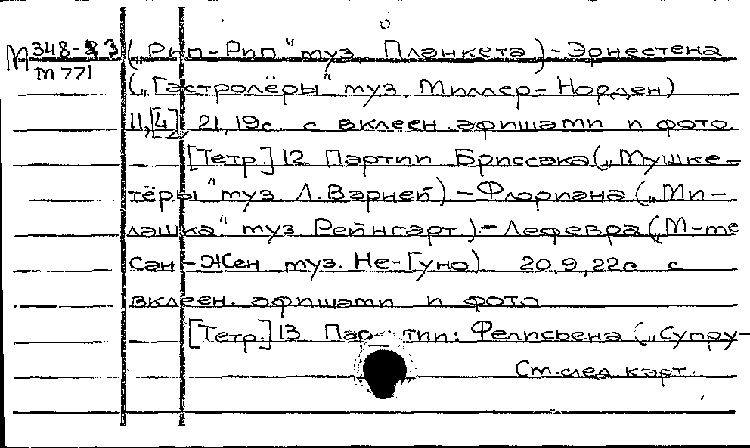 М 348-23 („Рип-Рип" муз. Планкета) - Эрнестена
М 771
(„Гастролёры" муз. Миллер-Норден)
11,[4], 21, 19с. с вклеен. афишами и фото
[Тетр.] 12 Партии Бриссака („Мушке-
тёры" муз. Л. Варнея) - Флориана („Ми-
лашка" муз. Рейнгарт.) - Лефевра („М-те
Сан-Жен муз. Не-Гуно). 20, 9, 22с. с
вклеен. афишами и фото
[Тетр.] 13 Партии: Фелисьена („Супру-
См. след карт.